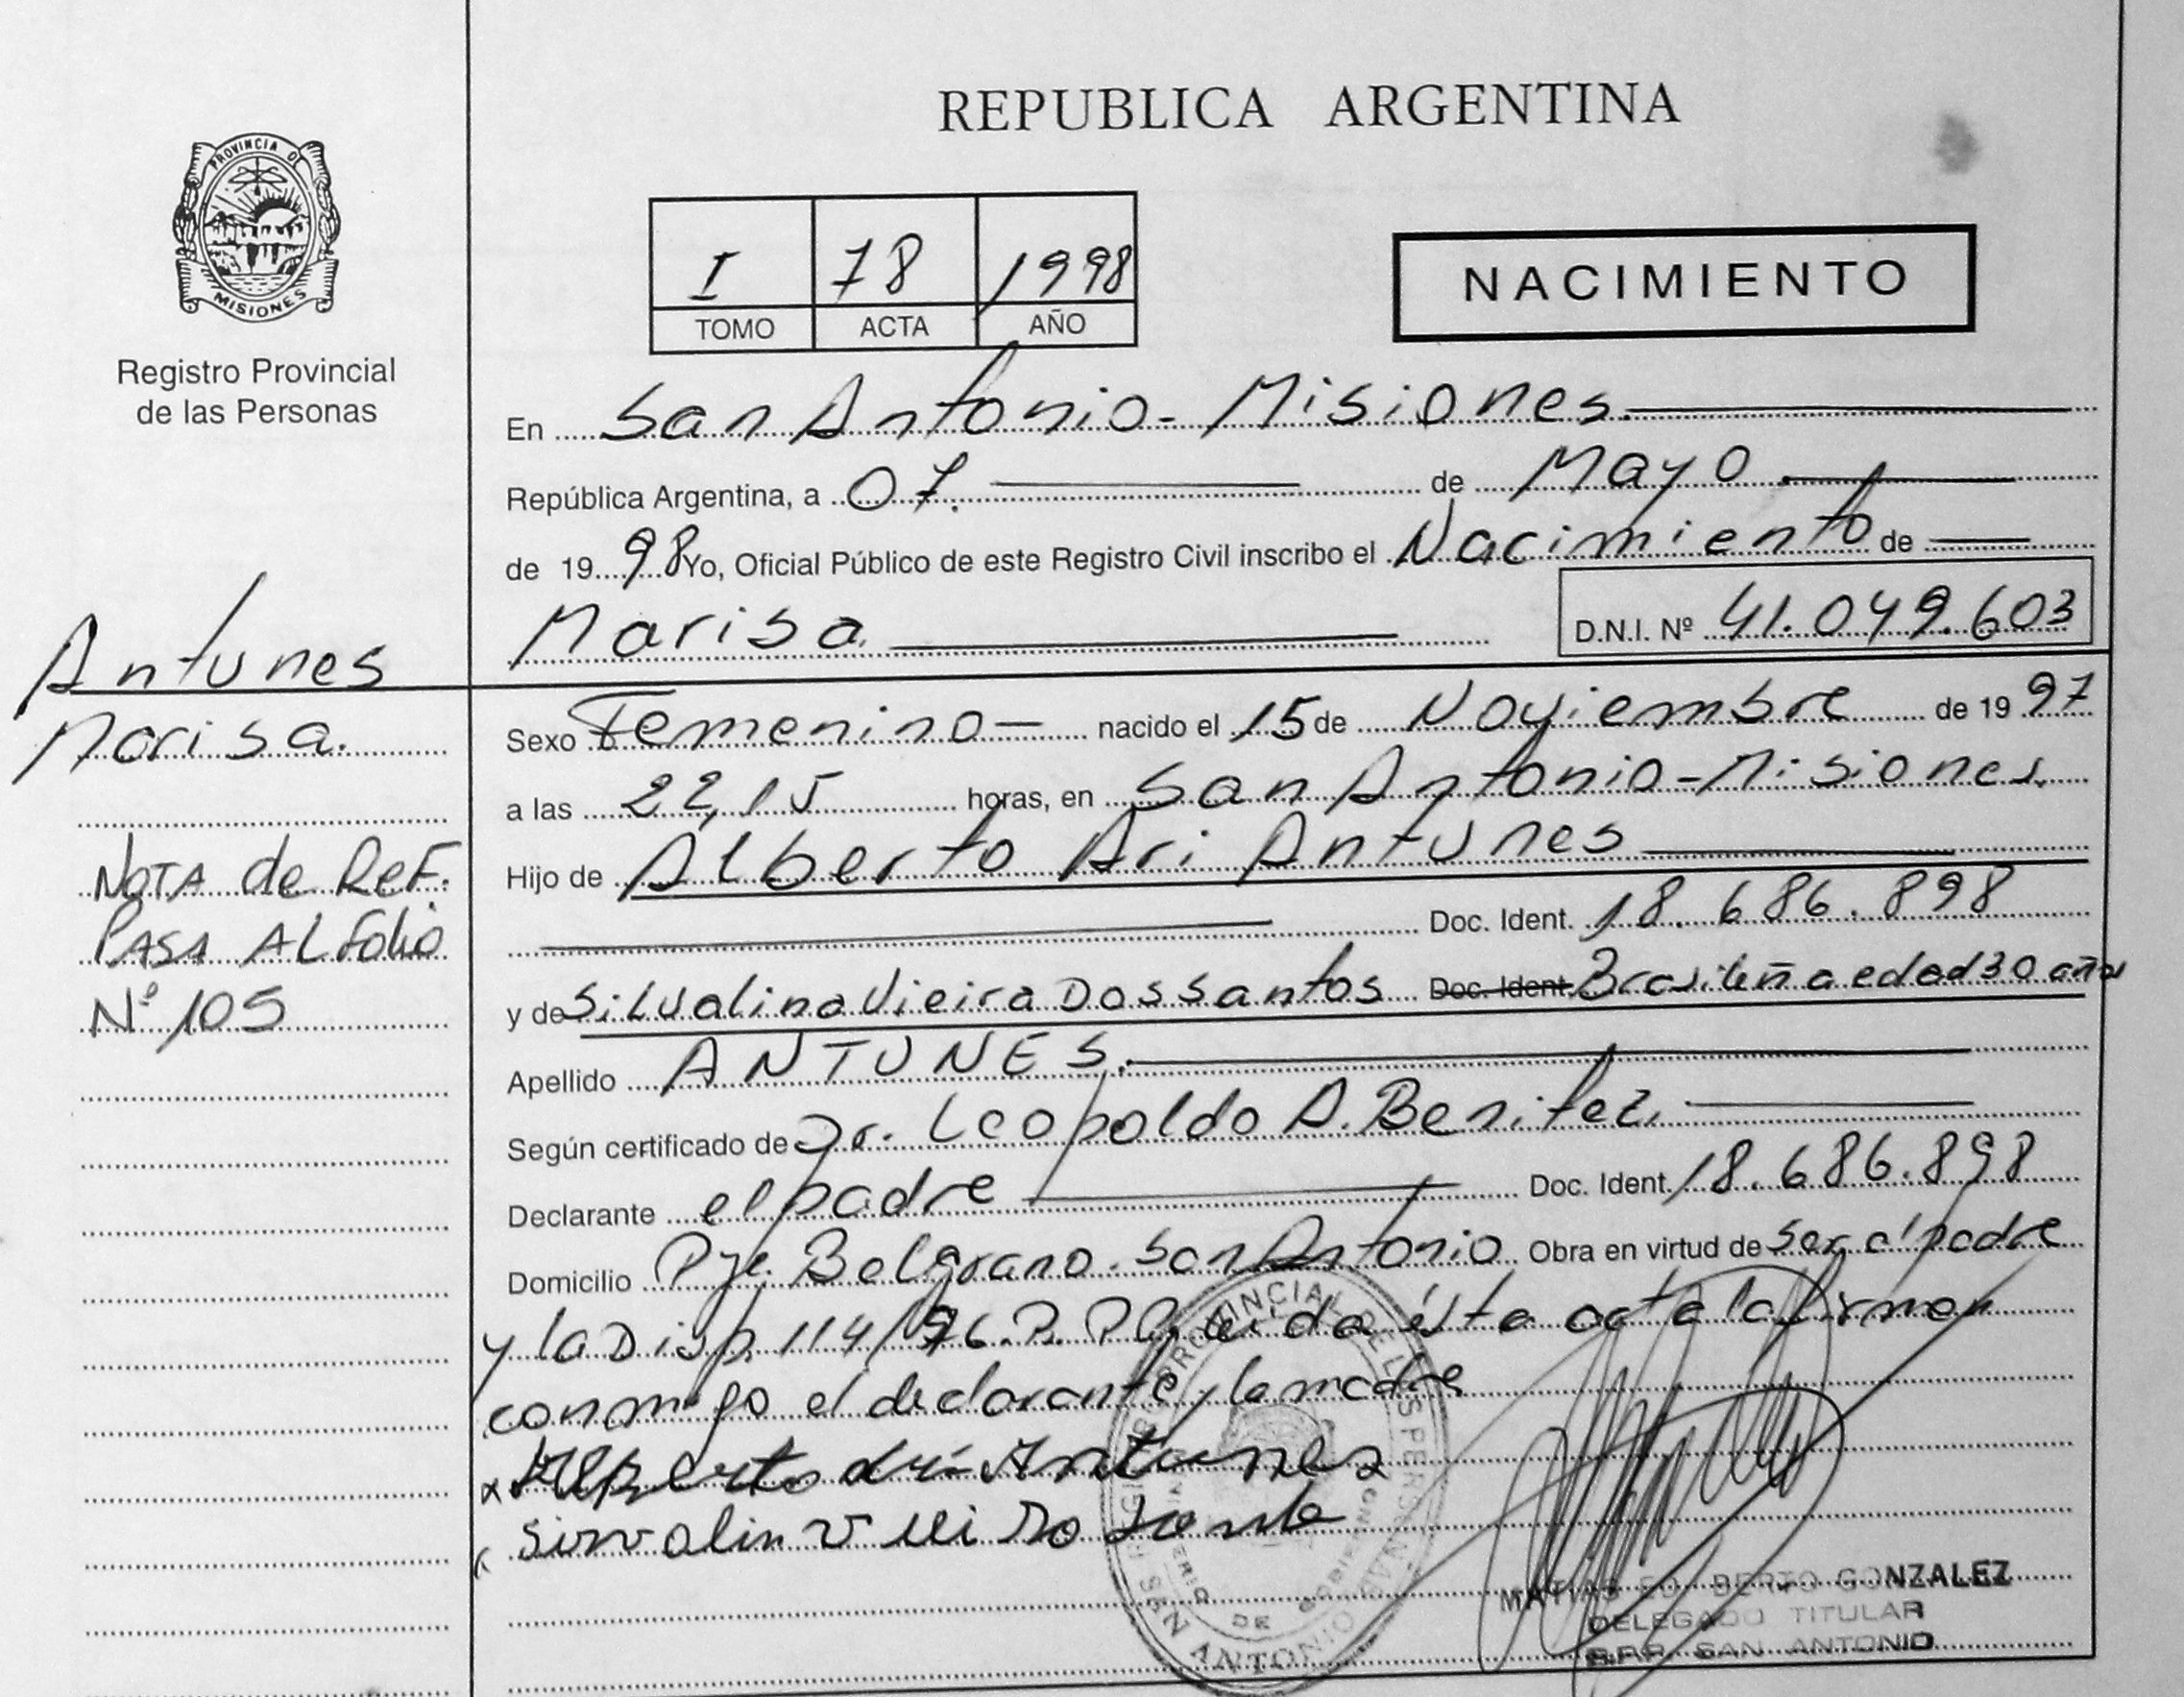 REPUBLICA ARGENTINA
PROVINCIA DE
MISIONES
Registro Provincial
de las Personas
I 78 1998
TOMO ACTA AÑO
NACIMIENTO
En San Antonio - Misiones.
República Argentina, a 07. de Mayo
de 19 98 Yo, Oficial Público de este Registro Civil inscribo el Nacimiento de
Marisa. D.N.I. Nº 41.049.603
Antunes
Marisa.
NOTA de Ref.
PASA AL Folio
Nº 105
Sexo Femenino nacido el 15 de Noviembre de 19 97
a las 22,15 horas, en San Antonio - Misiones.
Hijo de Alberto Ari Antunes
Doc. Ident. 18.686.898
y de Silvalina Vieira Dos santos Doc. Ident. Brasileña edad 30 años
Apellido ANTUNES.
Según certificado de Dr. Leopoldo A. Benitez.
Declarante el padre Doc. Ident. 18.686.898
Domicilio Pje. Belgrano. San Antonio Obra en virtud de ser el padre
y la Disp. 114/96. Leida ésta acta la firman
conmigo el declarante y la madre
x Alberto Ari Antunes
MATIAS GONZALEZ
DELEGADO TITULAR
R.P.P. SAN ANTONIO
SAN ANTONIO